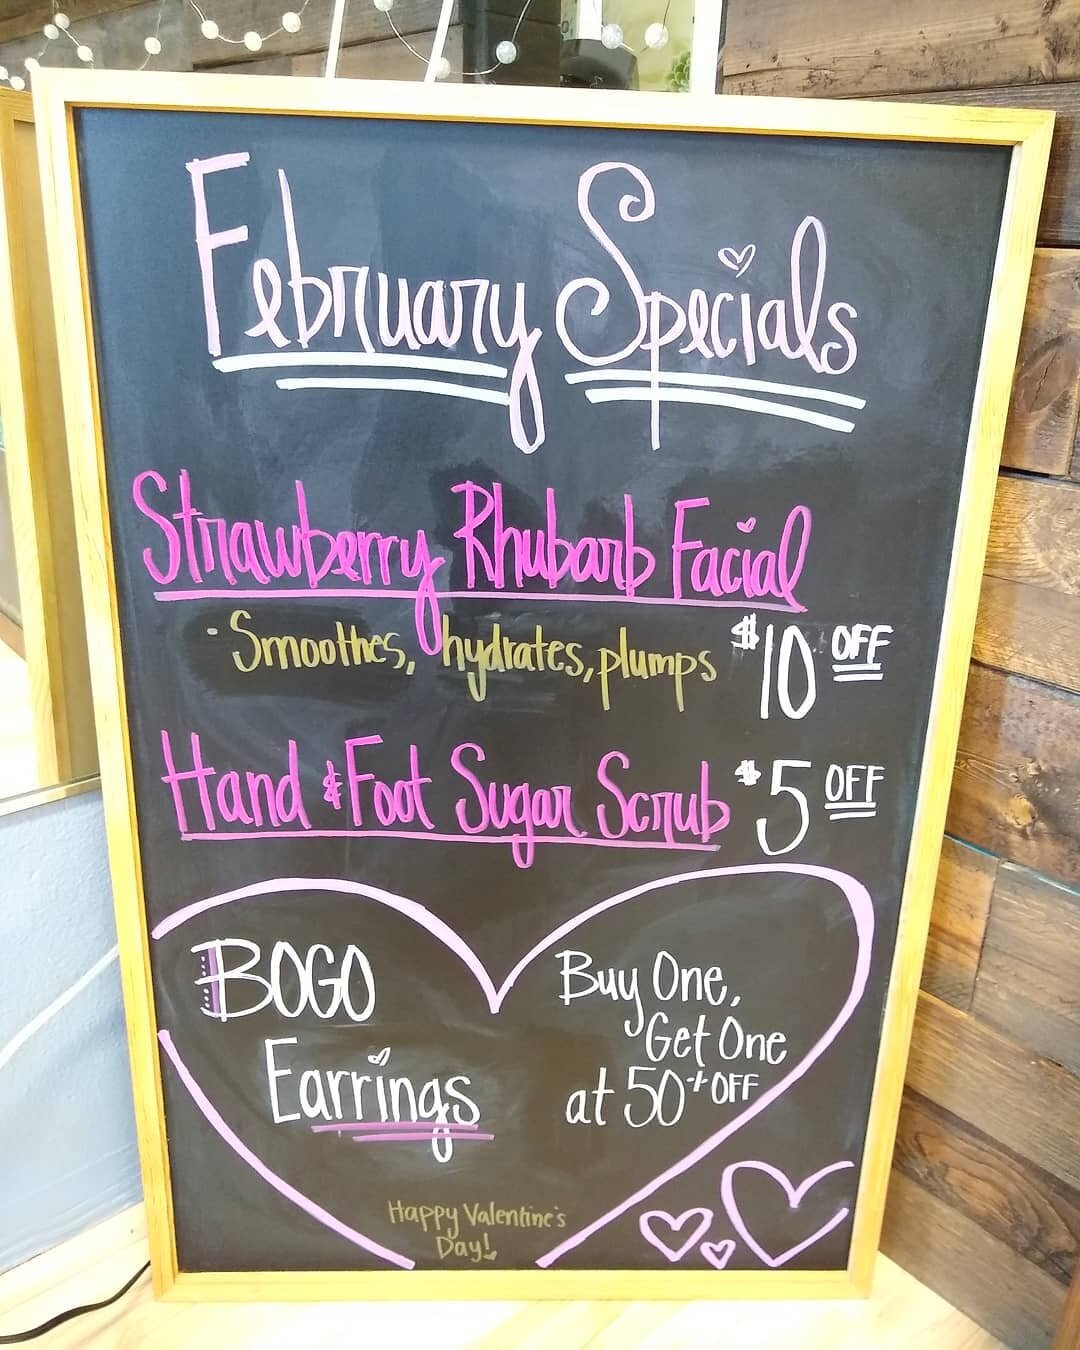 February Specials
Strawberry Rhubarb Facial
· Smoothes, hydrates, plumps $10 OFF
Hand & Foot Sugar Scrub $5 OFF
BOGO
Earrings
Buy One,
Get One
at 50% OFF
Happy Valentine's
Day!